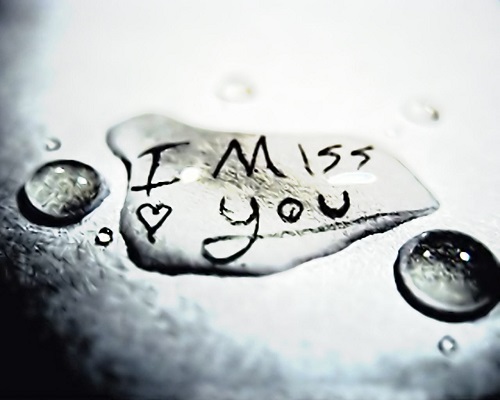 I Miss
♡ you